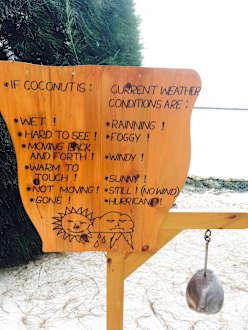 * IF COCONUT IS :
* WET !
* HARD TO SEE !
* MOVING BACK
AND FORTH !
* WARM TO
TOUCH !
* NOT MOVING !
* GONE !
CURRENT WEATHER
CONDITIONS ARE :
* RAINNING !
* FOGGY !
* WINDY !
* SUNNY !
* STILL ! (NO WIND)
* HURRICANE !